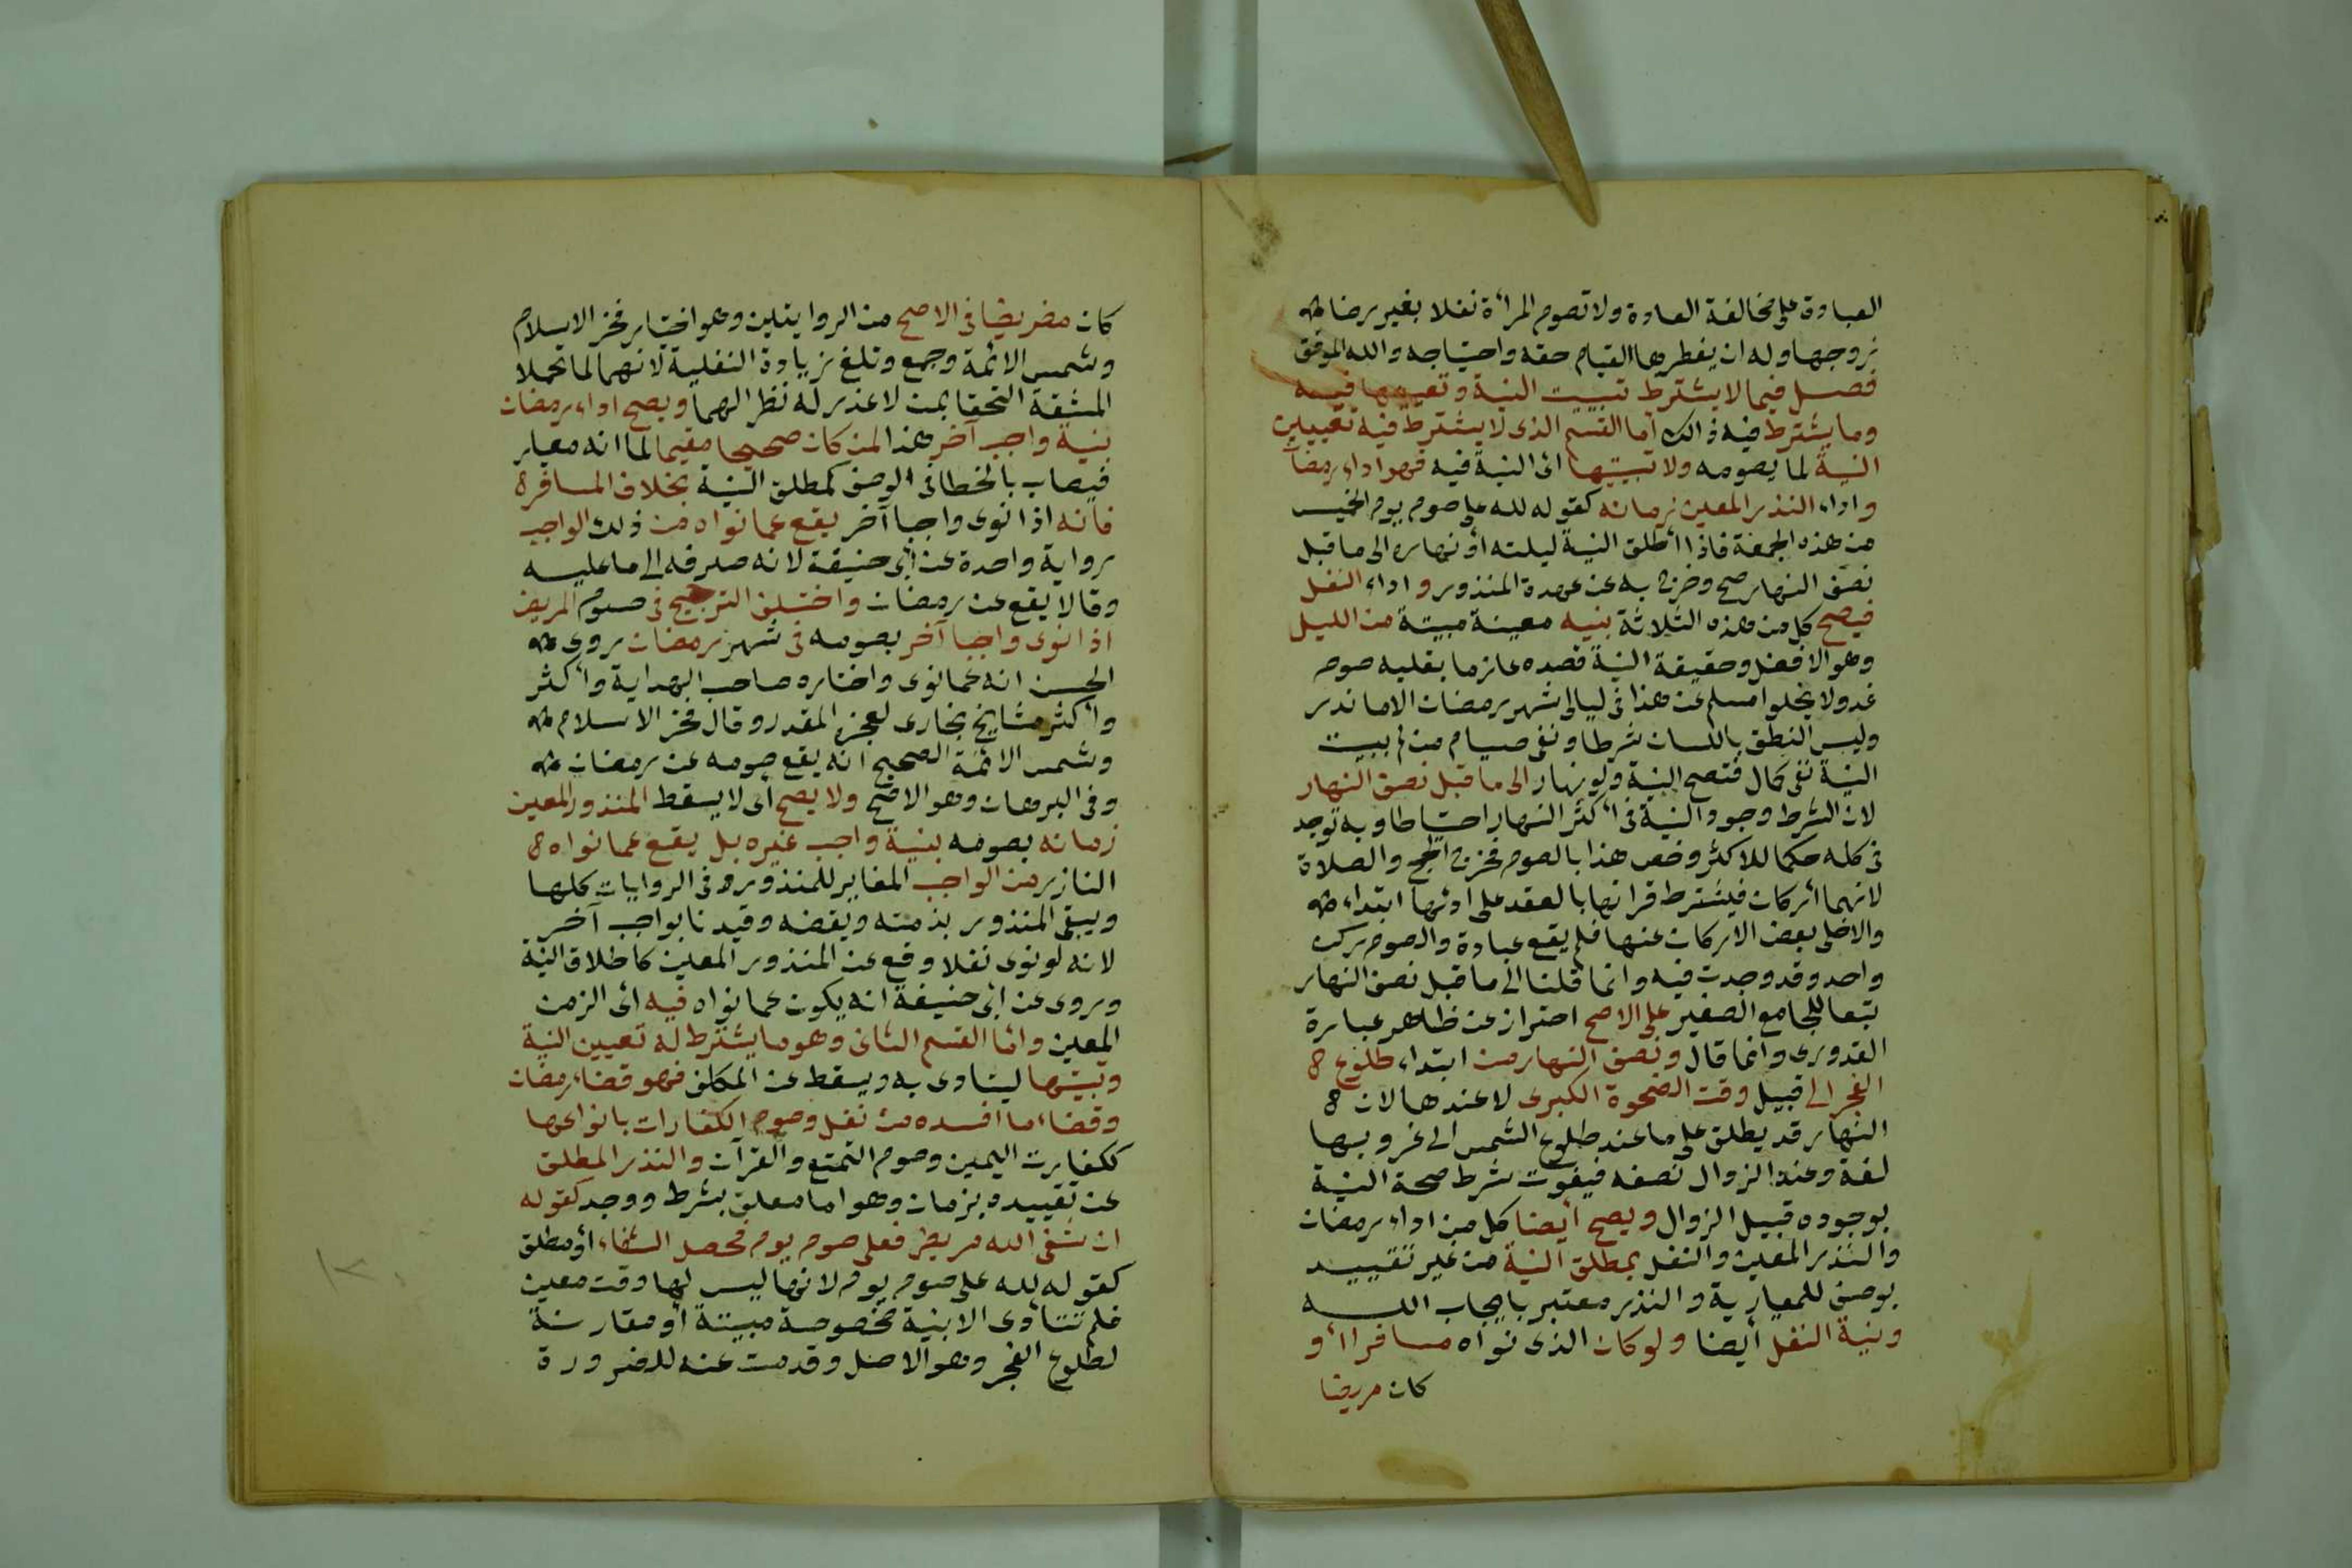 العبادة على مخالفة العادة ولا تصوم المرأة نفلا بغير رضا
زوجها وله ان يفطرها القيام حقه واحتياجه والله الموفق
فصل فيما لا يشترط تبييت النية وتعيينها فيه
وما يشترط فيه ذالك أما القسم الذى لا يشترط فيه تعيين
النية لما يصومه ولا تبييتها اى النية فيه فهو اداء رمضان
واداء النذر المعين زمانه كقوله لله على صوم يوم الخميس
من هذه الجمعة فاذا أطلق النية ليلته او نهاره الى ما قبل
نصف النهار صح وخرج به عن عهدة المنذور واداء النفل
فيصح كل من هذه الثلاثة بنيه معينة مبيتة من الليل
وهو الافضل وحقيقة النية قصده عازما بقلبه صوم
غد ولا يخلوا مسلم عن هذا فى ليالى شهر رمضان الا ما ندر
وليس النطق باللسان شرطا ونفى صيام من لم يبيت
النية نفى كمال فتصح النية ولو نهارا الى ما قبل نصف النهار
لان الشرط وجود النية فى أكثر النهار احتياطا وبه توجد
فى كله حكما للاكثر وخص هذا بالصوم فخرج الحج والصلاة
لانهما أركان فيشترط قرانها بالعقد على ادئها ابتداء
والاخلى بعض الاركان عنها فلم يقع عبادة والصوم ركن
واحد وقد وجدت فيه وانما قلنا الى ما قبل نصف النهار
تبعا للجامع الصغير على الاصح احتراز عن ظاهر عبارة
القدورى وانما قال ونصف النهار من ابتداء طلوع
الفجر الى قبيل وقت الضحوة الكبرى لا عندها لان
النهار قد يطلق على ما عند طلوع الشمس الى غروبها
لغة وعند الزوال نصفه فيفوت شرط صحة النية
بوجوده قبيل الزوال ويصح أيضا كل من اداء رمضان
والنذر المعين والنفل بمطلق النية من غير تقييد
بوصف للمعيارية والنذر معتبر بايجاب الله
وبنية النفل أيضا ولو كان الذى نواه مسافرا أو
كان مريضا
كان مريضا فى الاصح من الروايتين وهو اختيار فخر الاسلام
وشمس الائمة وجمع وتلغ زيادة النفلية لانهما لما تحملا
المشقة التحقا بمن لا عذر له نظرا لهما ويصح اداء رمضان
بنية واجب آخر هذا لمن كان صحيحا مقيما لما انه معيار
فيصاب بالخطا فى الوصف كمطلق النية بخلاف المسافر
فانه اذا نوى واجبا آخر يقع عما نواه من ذلك الواجب
رواية واحدة عن أبى حنيفة لانه صرفه الى ما عليه
وقالا يقع عن رمضان واختلف الترجيح فى صوم المريض
اذا نوى واجبا آخر بصومه فى شهر رمضان روى
الحسن انه عما نوى واختاره صاحب الهداية وأكثر
وأكثر مشايخ بخارى لعجزه المقدر وقال فخر الاسلام
وشمس الائمة الصحيح انه يقع صومه عن رمضان
وفى البرهان وهو الاصح ولا يصح اى لا يسقط المنذور المعين
زمانه بصومه بنية واجب غيره بل يقع عما نواه
الناذر من الواجب المغاير للمنذور فى الروايات كلها
ويبقى المنذور بذمته ويقضه وقيدنا بواجب آخر
لانه لو نوى نفلا وقع عن المنذور المعين كاطلاق النية
وروى عن ابى حنيفة انه يكون عما نواه فيه اى الزمن
المعين وأما القسم الثانى وهو ما يشترط له تعيين النية
وتبيتها ليتادى به ويسقط عن المكلف فهو قضاء رمضان
وقضاء ما افسده من نفل وصوم الكفارات بانواعها
ككفارت اليمين وصوم التمتع والقرآن والنذر المطلق
عن تقييده بزمان وهو اما معلق بشرط ووجد كقوله
ان شفى الله مريض فعلى صوم يوم فحصل الشفاء أو مطلق
كقوله لله على صوم يوم لانها ليس لها وقت معين
فلم تتأدى الا بنية مخصوصة مبيتة أو مقارنة
لطلوع الفجر وهو الاصل وقدمت عنه للضرورة